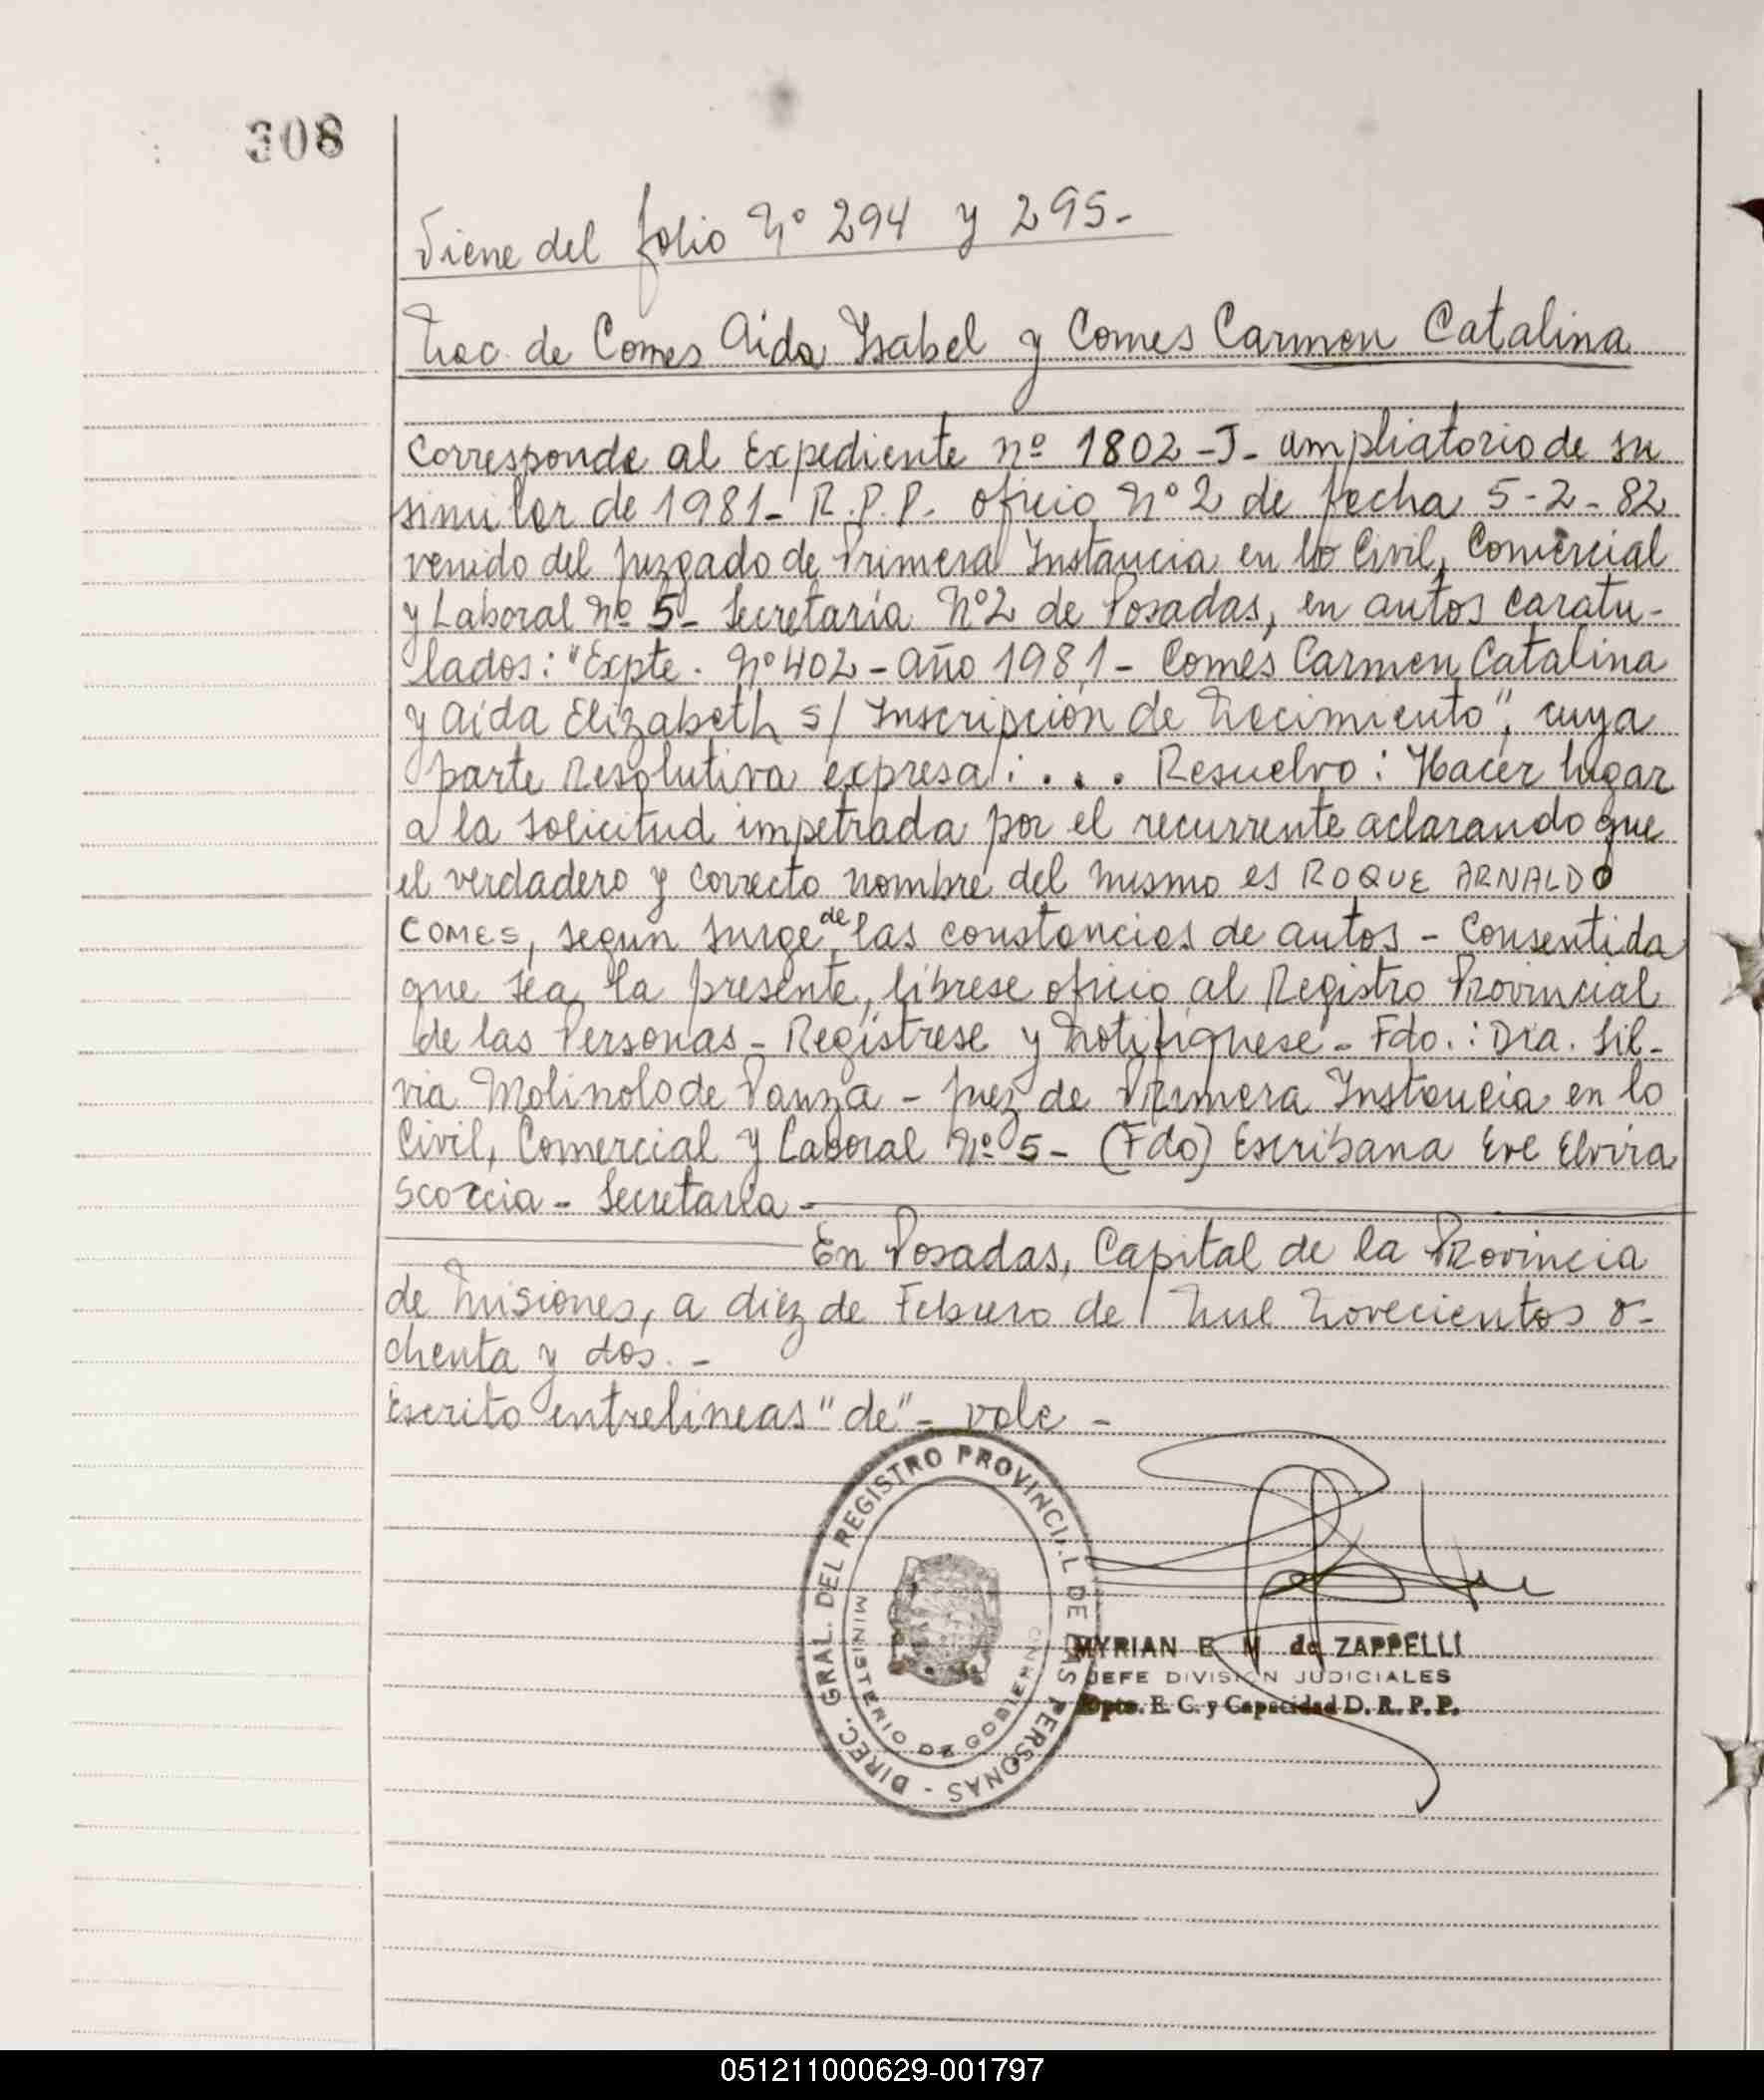 308
Viene del folio Nº 294 y 295-
Nac. de Comes Aida Isabel y Comes Carmen Catalina
Corresponde al Expediente nº 1802-J- ampliatorio de su
similar de 1981- R.P.P. oficio Nº 2 de fecha 5-2-82
venido del Juzgado de Primera Instancia en lo Civil, Comercial
y Laboral Nº 5- Secretaría Nº 2 de Posadas, en autos caratu-
lados: "Expte. Nº 402-año 1981- Comes Carmen Catalina
y Aída Elizabeth s/ Inscripción de Nacimiento", cuya
parte Resolutiva expresa: .... Resuelvo: Hacer lugar
a la solicitud impetrada por el recurrente aclarando que
el verdadero y correcto nombre del mismo es ROQUE ARNALDO
COMES, segun surge de las constancias de autos - Consentida
que sea la presente, líbrese oficio al Registro Provincial
de las Personas - Regístrese y Notifíquese - Fdo.: Dra. Sil-
via Molinolo de Panza - Juez de Primera Instancia en lo
Civil, Comercial y Laboral Nº 5- (Fdo) Escribana Eve Elvira
Scozcia - Secretaria -
En Posadas, Capital de la Provincia
de Misiones, a diez de Febrero de Mil Novecientos o-
chenta y dos. -
Escrito entrelineas "de" - vale -
DIREC. GRAL. DEL REGISTRO PROVINCIAL DE LAS PERSONAS -
MINISTERIO DE GOBIERNO
MYRIAN E. M. de ZAPPELLI
JEFE DIVISION JUDICIALES
Dpto. E. C. y Capacidad D. R. P. P.
051211000629-001797